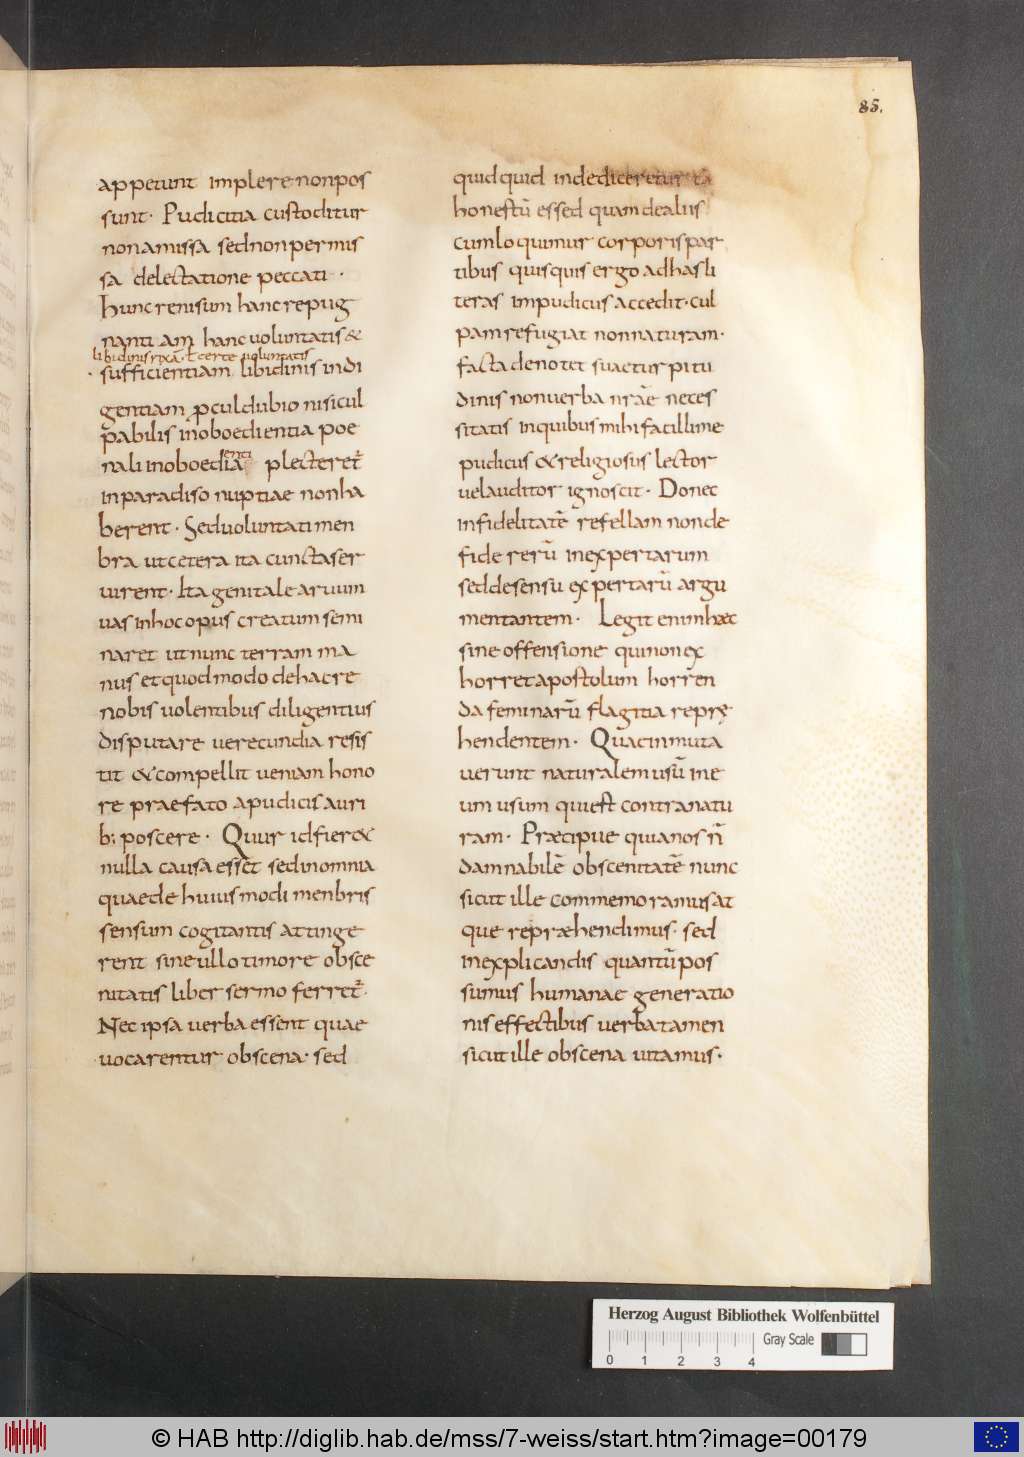 85.
appetunt implere non pos
sunt· Pudicitia custoditur
non amissa sed non permis
sa delectatione peccati·
hunc renisum hanc repug
nantiam hanc voluntatis &
libidinis rixā· ł certe voluntatis
· sufficientiam libidinis indi
gentiam proculdubio nisi cul
pabilis inoboedientia poe
enti
nali inoboedia plecteret̄
in paradiso nuptiae non ha
berent· Sed voluntati men
bra ut cetera ita cuncta ser
uirent· Ita genitale aruum
uas in hoc opus creatum semi
naret ut nunc terram ma
nus et quod modo de hac re
nobis uolentibus diligentius
disputare uerecundia resis
tit & compellit ueniam hono
re praefato a pudicis auri
b; poscere· Quur id fier&
nulla causa esset sed in omnia
quae de huiusmodi menbris
sensum cogitantis attinge
rent sine ullo timore obsce
nitatis liber sermo ferret̄·
Nec ipsa uerba essent quae
uocarentur obscena· sed
quidquid inde diceretur ta
honestū essed quam de aliis
cum loquimur corporis par
tibus quisquis ergo ad has li
teras impudicus accedit· cul
pam refugiat non naturam·
facta denotet suae turpitu
dinis non uerba nr̄ae neces
sitatis in quibus mihi facillime
pudicus & religiosus lector
uel auditor ignoscit· Donec
infidelitatē refellam non de
fide rerū inexpertarum
sed de sensu expertarū argu
mentantem· Legit enim haec
sine offensione qui non ex
horret apostolum horren
da feminarū flagitia reprę
hendentem· Quae inmuta
uerunt naturalem usū in e
um usum qui est contra natu
ram· Praecipue quia nos n̄
damnabilē obscenitatē nunc
sicut ille commemoramus at
que repraehendimus· sed
in explicandis quantū pos
sumus humanae generatio
nis effectibus uerba tamen
sicut ille obscena uitamus·
Herzog August Bibliothek Wolfenbüttel
Gray Scale
0 1 2 3 4
© HAB http://diglib.hab.de/mss/7-weiss/start.htm?image=00179